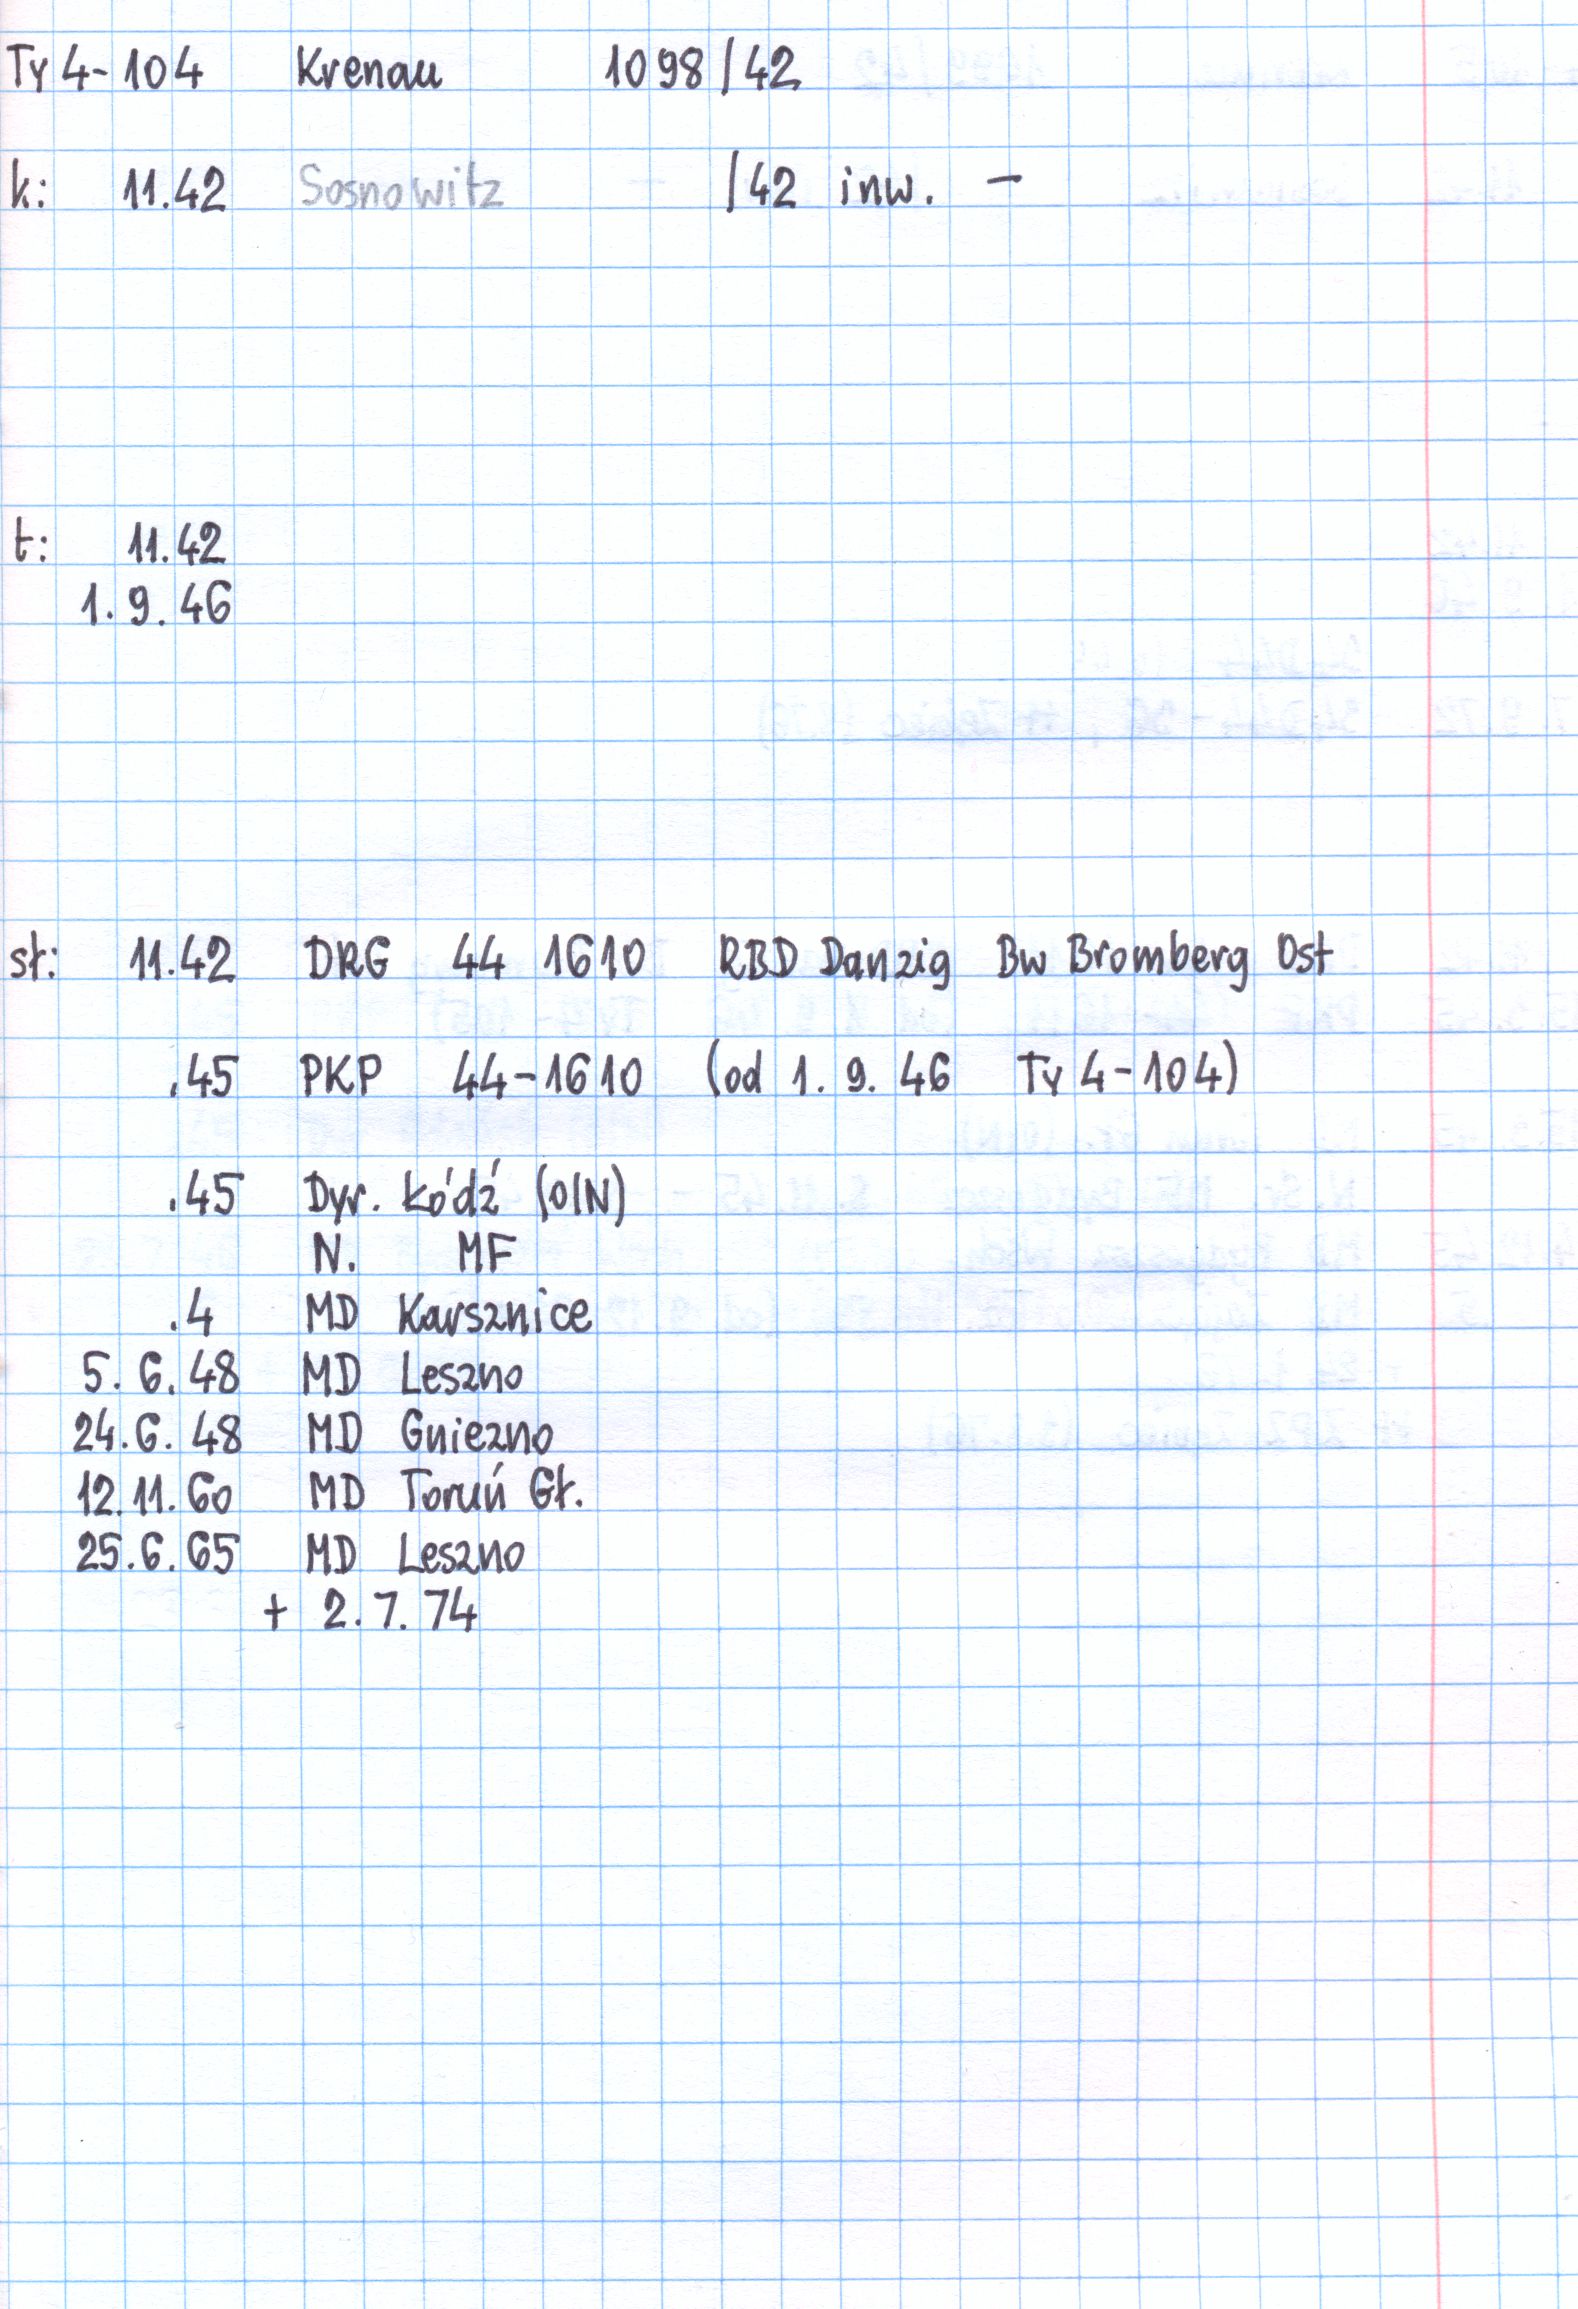 Ty 4-104 Krenau 1098/42
k: 11.42 Sosnowitz – /42 inw. –
t: 11.42
1.9.46
st: 11.42 DRG 44 1610 RBD Danzig Bw Bromberg Ost
.45 PKP 44-1610 (od 1.9.46 Ty 4-104)
.45 Dyr. Łódź (OIN)
N. MF
.4 MD Karsznice
5.6.48 MD Leszno
24.6.48 MD Gniezno
12.11.60 MD Toruń Gł.
25.6.65 MD Leszno
+ 2.7.74